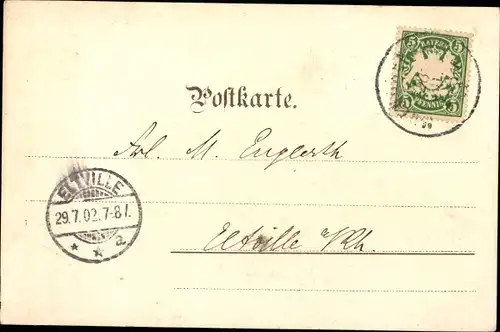 5 BAYERN 5
5 PFENNIG 5
Postkarte.
Frl. M. Englerth
ELTVILLE
29.7.02.7-8 V.
* * a
Eltville a/Rh.